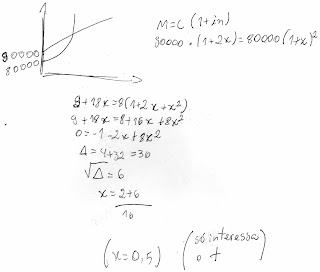 M=C(1+in)
90000
80000
80000.(1+2x)=80000(1+x)²
9+18x=8(1+2x+x²)
9+18x=8+16x+8x²
0=-1-2x+8x²
Δ=4+32=36
√Δ=6
x=2+6
16
(x=0,5) (só interessa o +)